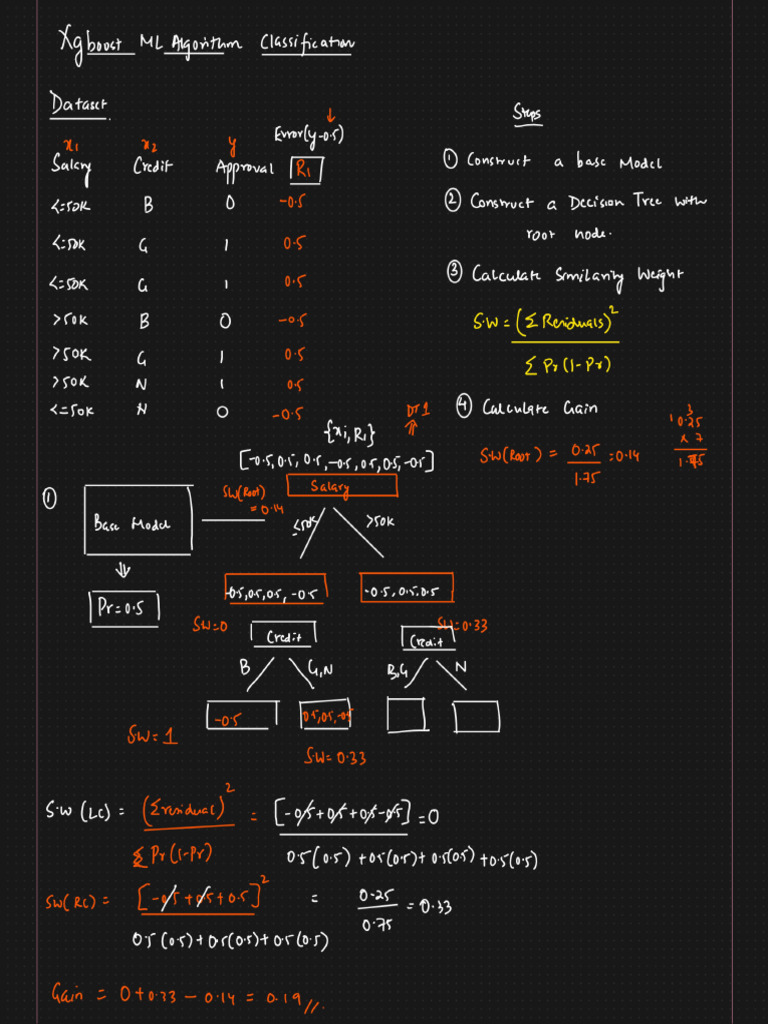 Xgboost ML Algorithm Classification
Dataset
Steps
Error(y-0.5)
x1 x2 y
Salary Credit Approval R1
<=50K B 0 -0.5
<=50K G 1 0.5
<=50K G 1 0.5
>50K B 0 -0.5
>50K G 1 0.5
>50K N 1 0.5
<=50K N 0 -0.5
① Construct a base Model
② Construct a Decision Tree with
root node.
③ Calculate Similarity Weight
S.W = (Σ Residuals)²
Σ Pr(1-Pr)
④ Calculate Gain
S.W(Root) = 0.25 = 0.14
1.75
0.25
x 7
DT1
{xi, R1}
[-0.5, 0.5, 0.5, -0.5, 0.5, 0.5, -0.5]
① Base Model
SW(Root)
= 0.14
Salary
≤50K >50K
Pr=0.5
-0.5, 0.5, 0.5, -0.5
-0.5, 0.5, 0.5
SW=0
SW=0.33
Credit
Credit
B G,N
B,G N
-0.5
0.5, 0.5, -0.5
SW=1
SW=0.33
S.W (LC) = (Σresidual)² = [-0.5+0.5+0.5-0.5] = 0
Σ Pr(1-Pr) 0.5(0.5) + 0.5(0.5) + 0.5(0.5) + 0.5(0.5)
SW(RC) = [-0.5+0.5+0.5]² = 0.25 = 0.33
0.5(0.5)+0.5(0.5)+0.5(0.5) 0.75
Gain = 0+0.33-0.14 = 0.19//.